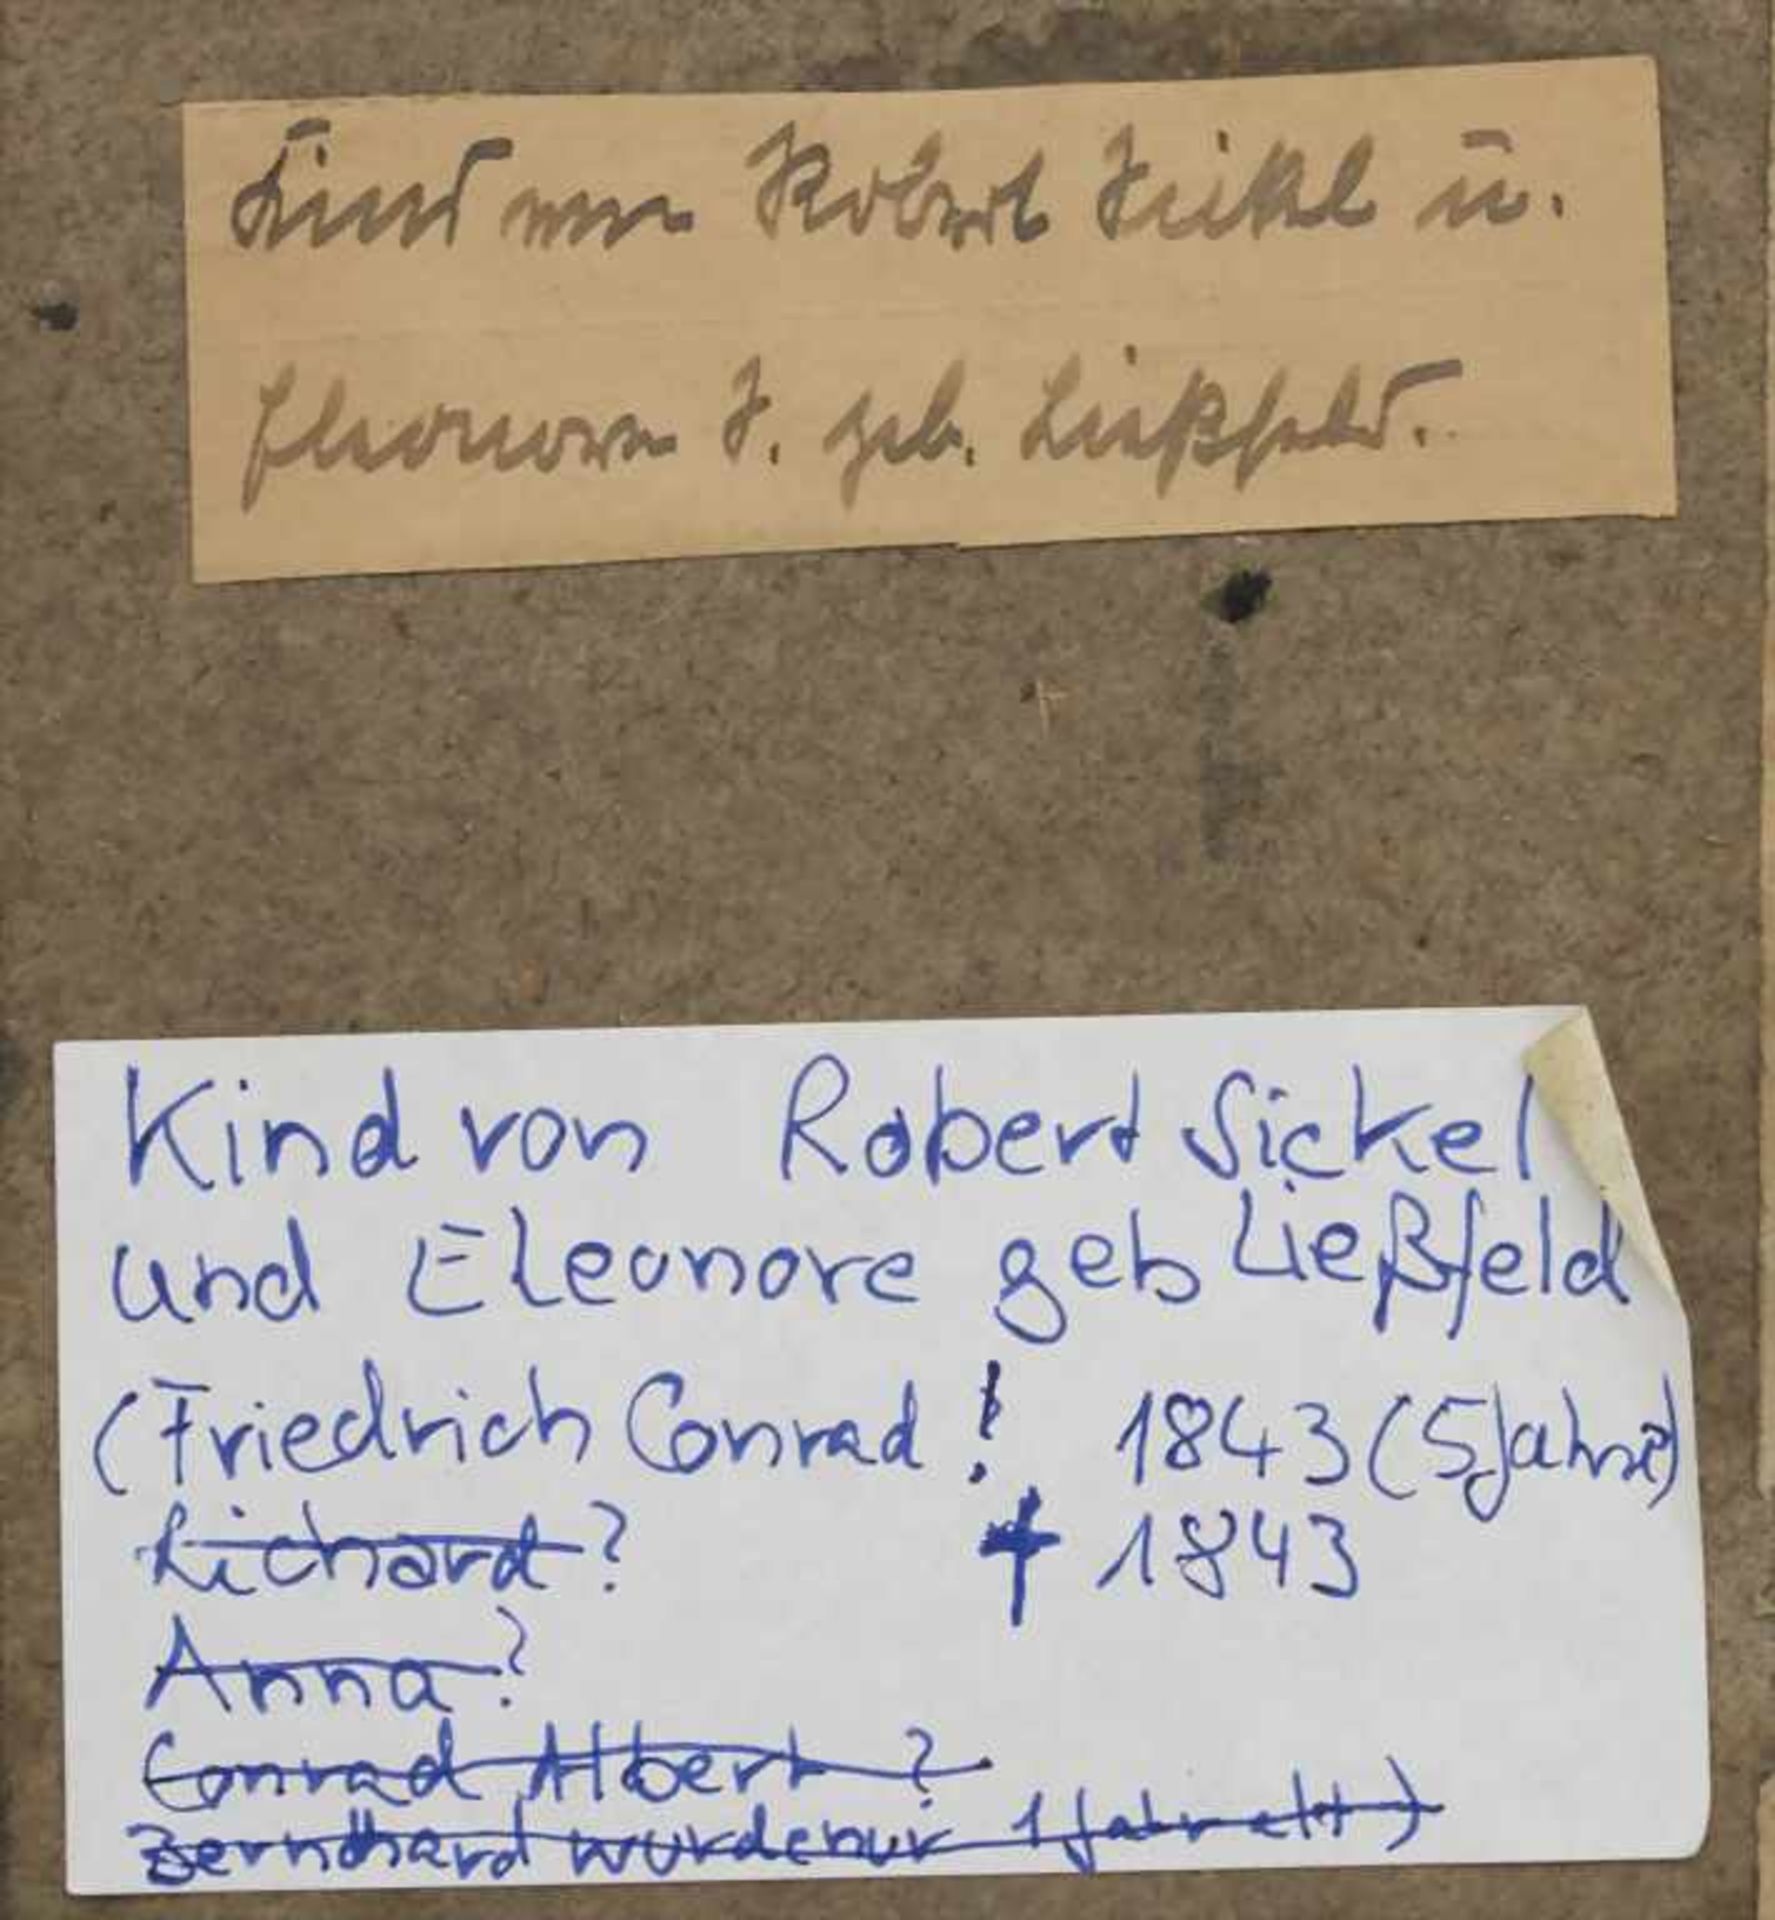 Kind von Robert Sickel u.
Eleonore S. geb. Ließfeld.
Kind von Robert Sickel
und Eleonore geb Ließfeld
(Friedrich Conrad ! 1843 (5 Jahre)
Richard ? † 1843
Anna ?
Conrad Albert ?
Bernhard wurde nur 1 Jahr alt)